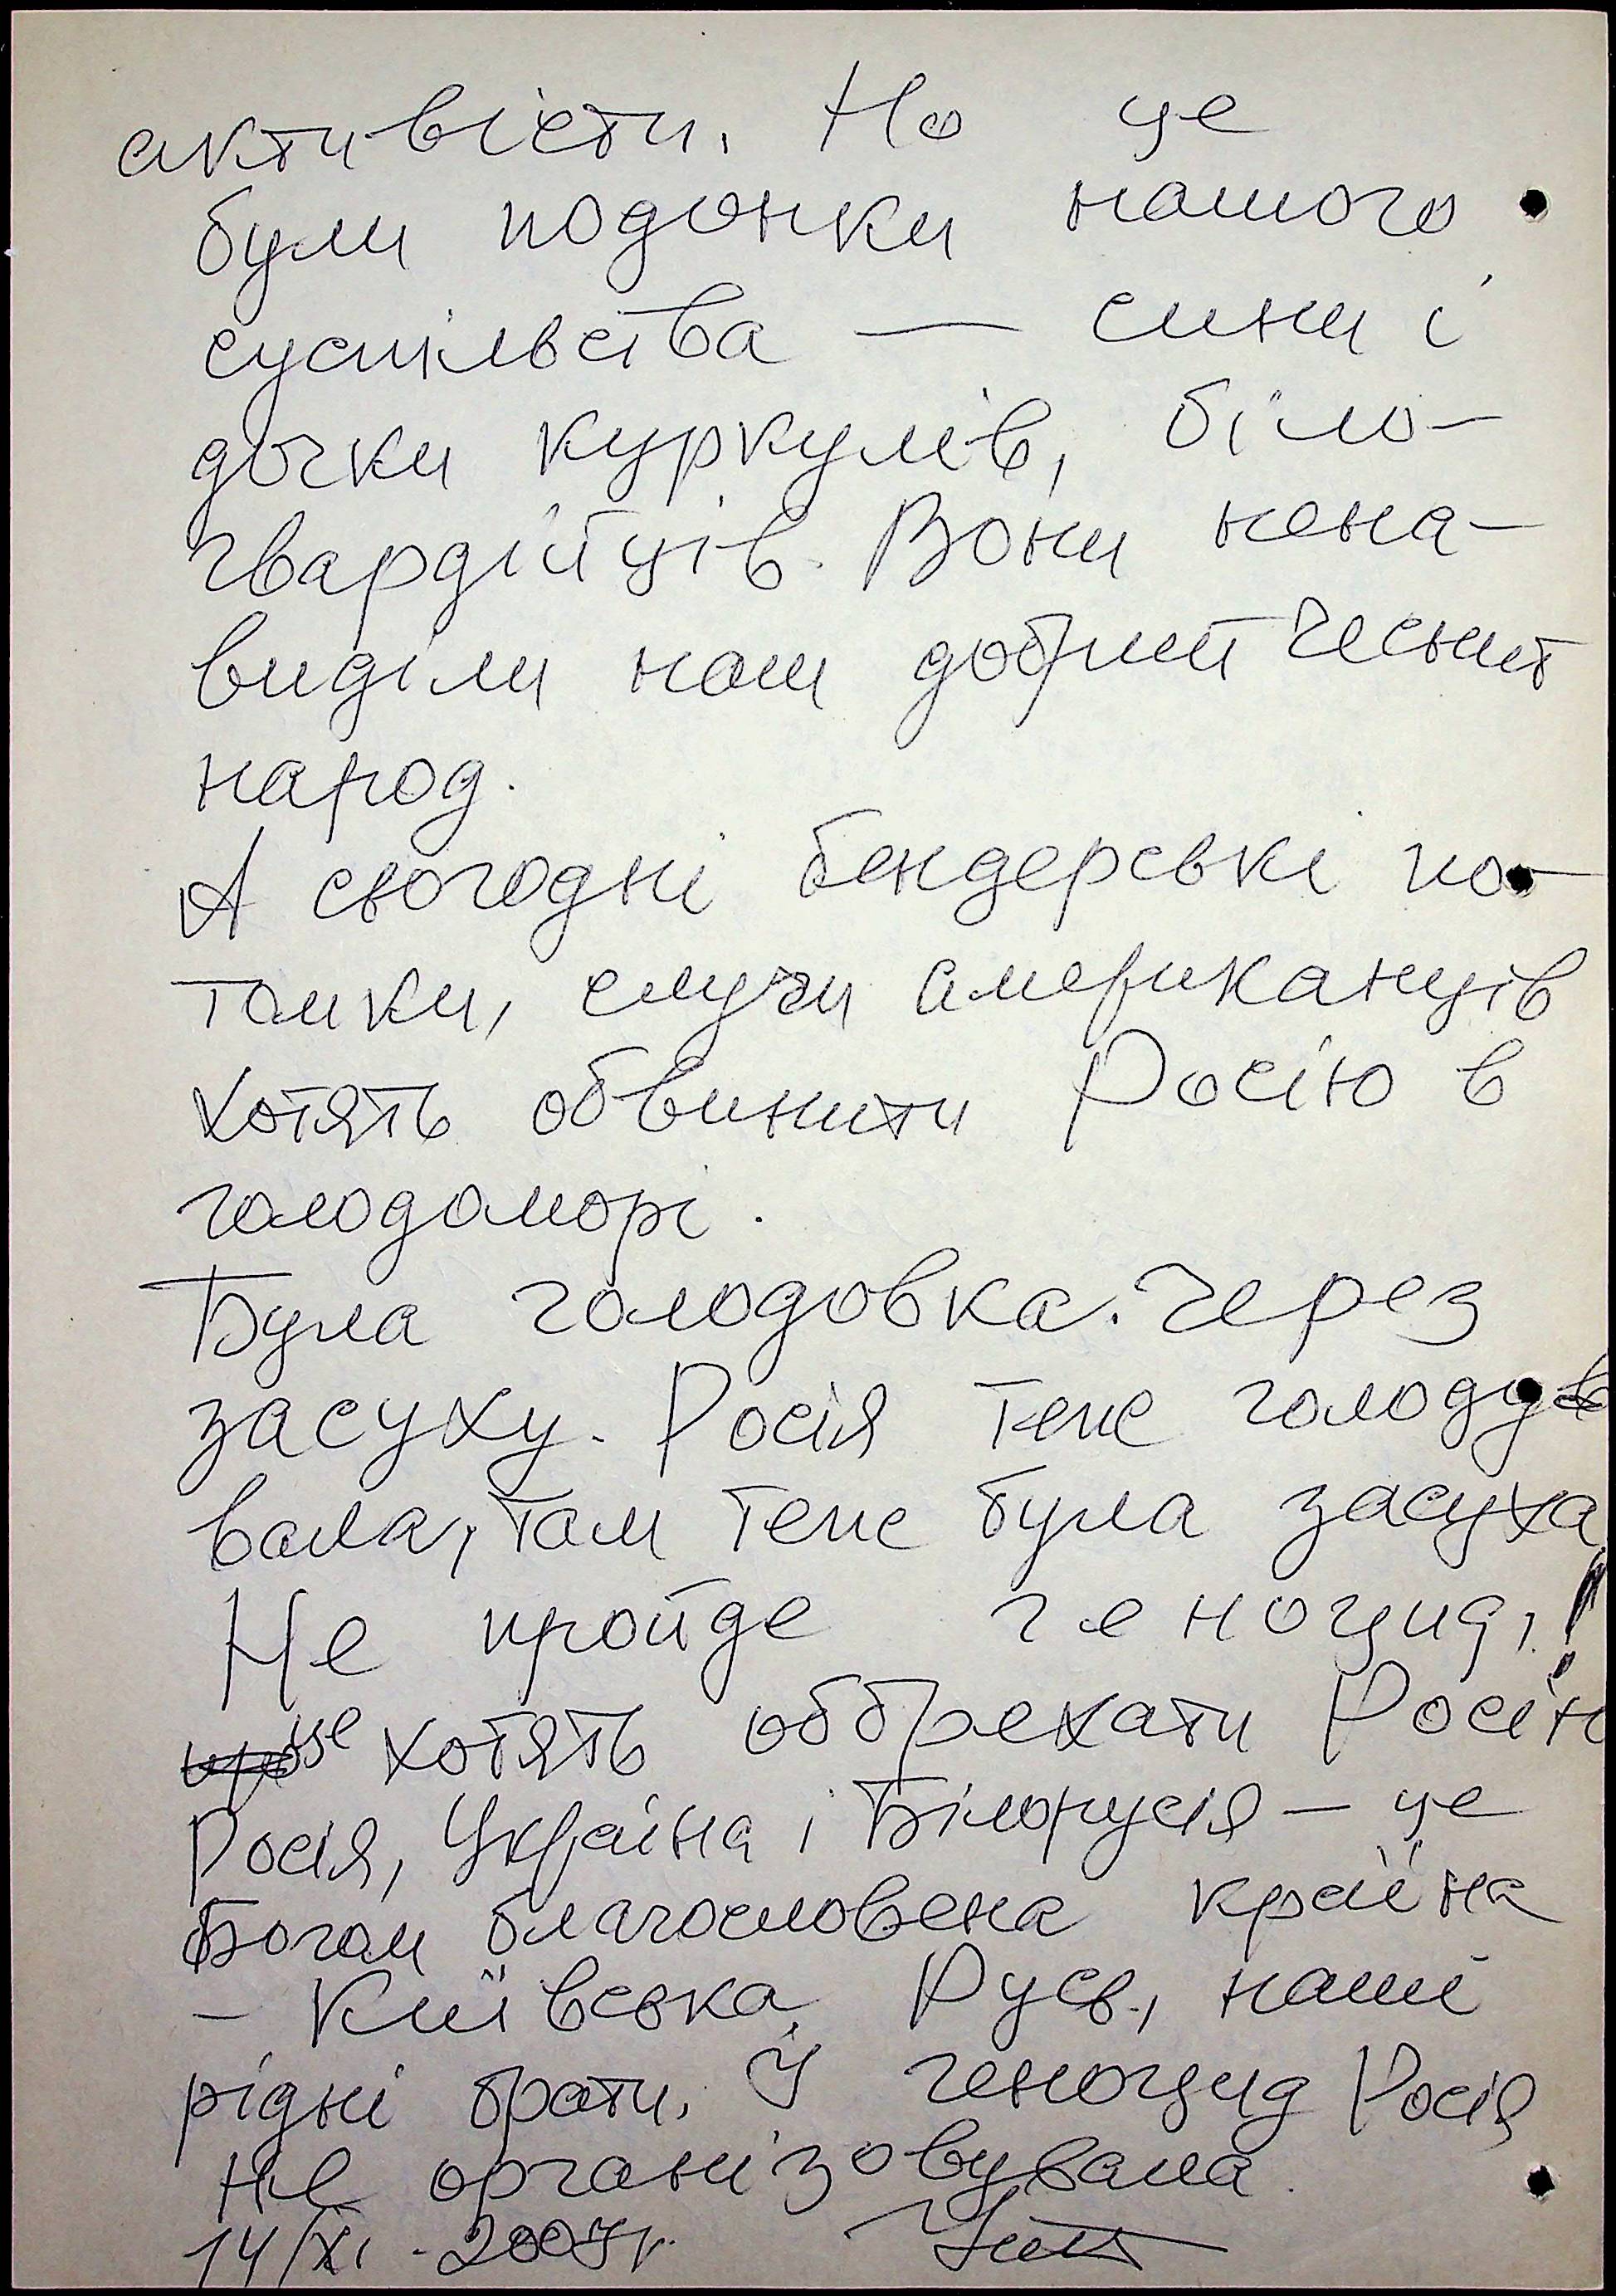 активісти. Но це
були подонки нашого
суспільства — сини і
дочки куркулів, біло-
гвардійців. Вони нена-
виділи наш добрий чесний
народ.
А сьогодні бендерські по-
томки, слуги американців
хотять обвинити Росію в
голодоморі.
Була голодовка. Через
засуху. Росія теж голоду-
вала, там теж була засуха
Не пройде геноцид,!
це хотять оббрехати Росію
Росія, Україна і Білорусія — це
Богом благословена країна
- Київська Русь, наші
рідні брати. І геноцид Росія
не організовувала.
14/XI - 2007 г.